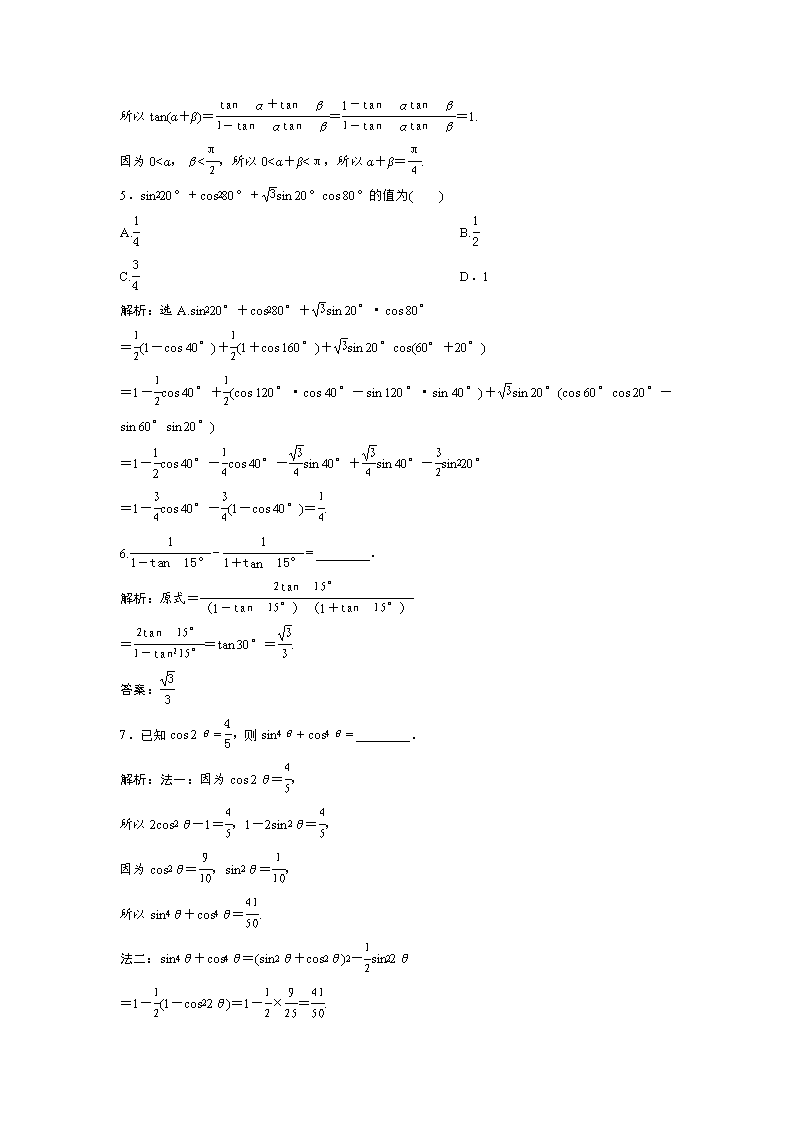 所以 tan(α+β)=(tan α+tan β)/(1-tan αtan β)=(1-tan αtan β)/(1-tan αtan β)=1.
因为 0<α, β<π/2, 所以 0<α+β<π, 所以 α+β=π/4.
5.sin²20°+cos²80°+√3sin 20°cos 80°的值为(  )
A.1/4  B.1/2
C.3/4  D.1
解析:选 A.sin²20°+cos²80°+√3sin 20°·cos 80°
=1/2(1-cos 40°)+1/2(1+cos 160°)+√3sin 20°cos(60°+20°)
=1-1/2cos 40°+1/2(cos 120°·cos 40°-sin 120°·sin 40°)+√3sin 20°(cos 60°cos 20°-
sin 60°sin 20°)
=1-1/2cos 40°-1/4cos 40°-√3/4sin 40°+√3/4sin 40°-3/2sin²20°
=1-3/4cos 40°-3/4(1-cos 40°)=1/4.
6.1/(1-tan 15°)-1/(1+tan 15°)=________.
解析:原式=2tan 15°/(1-tan 15°)(1+tan 15°)
=2tan 15°/(1-tan²15°)=tan 30°=√3/3.
答案:√3/3
7.已知 cos 2θ=4/5,则 sin⁴θ+cos⁴θ=________.
解析:法一:因为 cos 2θ=4/5,
所以 2cos²θ-1=4/5, 1-2sin²θ=4/5,
因为 cos²θ=9/10, sin²θ=1/10,
所以 sin⁴θ+cos⁴θ=41/50.
法二:sin⁴θ+cos⁴θ=(sin²θ+cos²θ)²-1/2sin²2θ
=1-1/2(1-cos²2θ)=1-1/2×9/25=41/50.